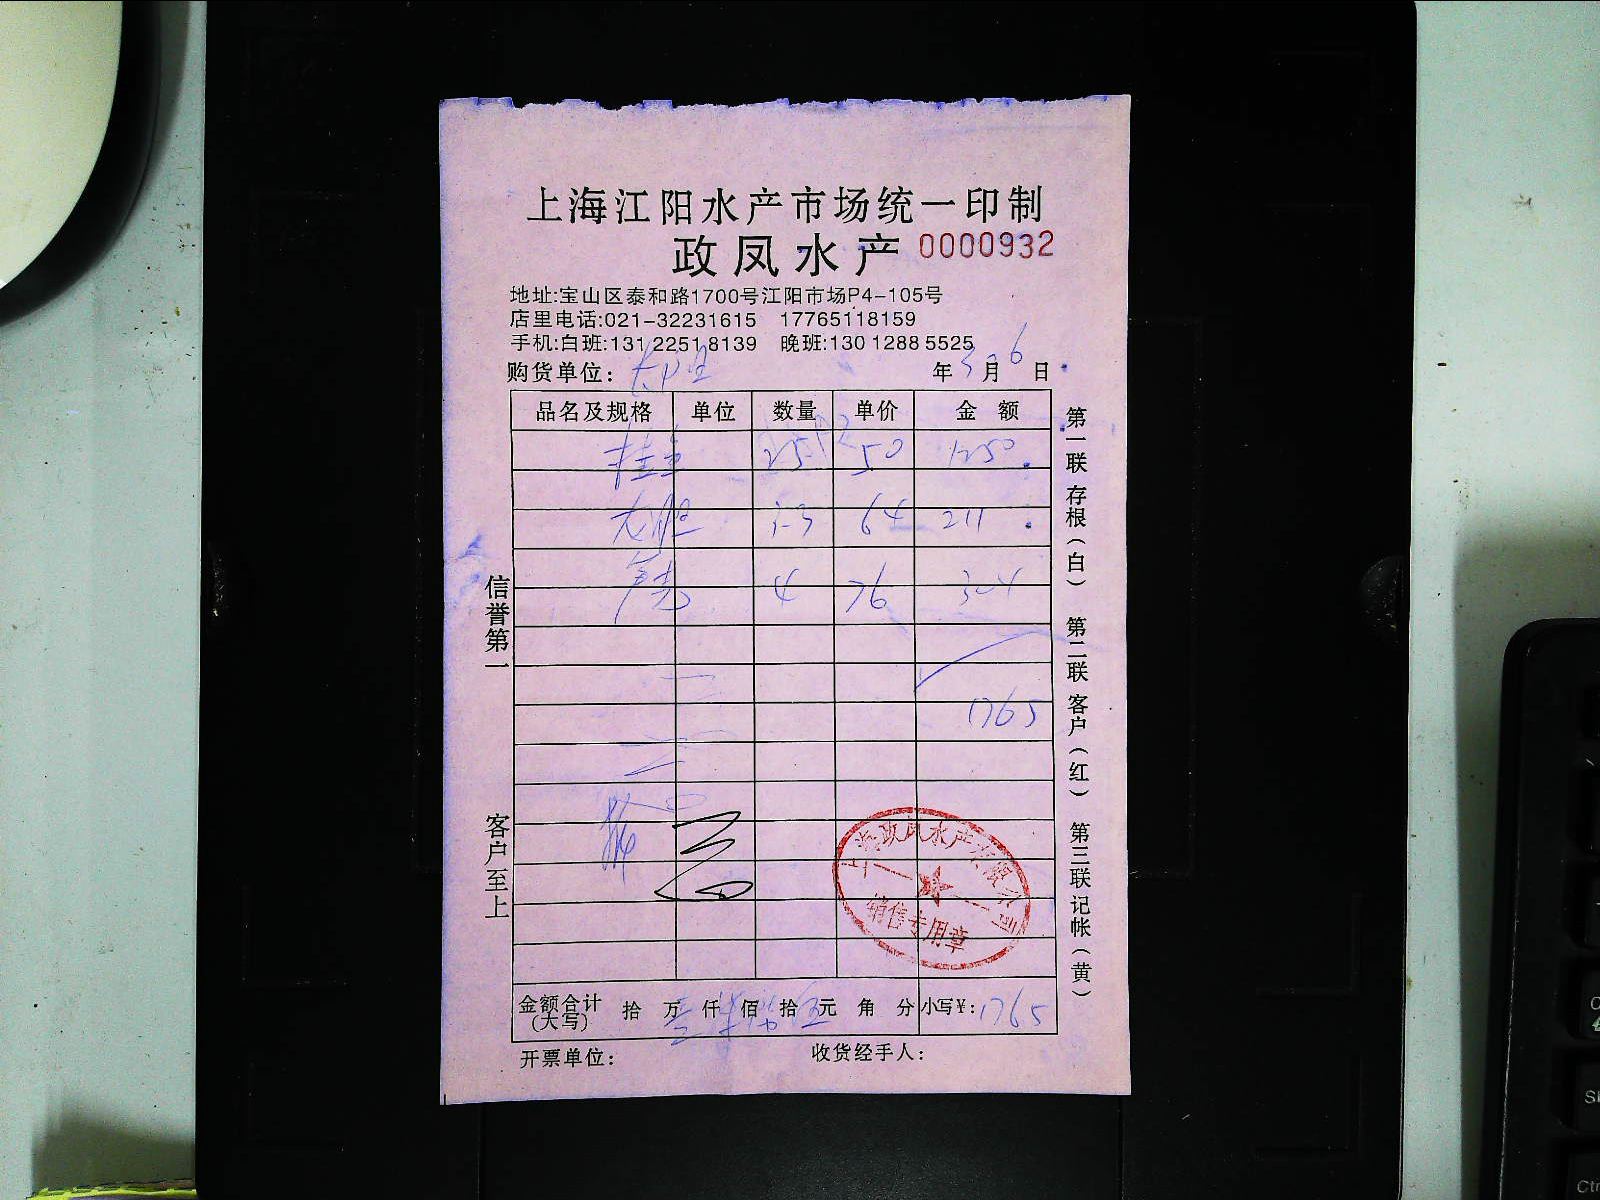 上海江阳水产市场统一印制
政凤水产 0000932
地址:宝山区泰和路1700号江阳市场P4-105号
店里电话:021-32231615 17765118159
手机:白班:131 2251 8139 晚班:130 1288 5525
购货单位: 年 3 月 6 日
品名及规格 单位 数量 单价 金额
50 1250
64 211
4 76 304
1765
上海政凤水产有限公司
销售专用章
金额合计(大写) 拾 万 仟 佰 拾 元 角 分 小写¥: 1765
开票单位: 收货经手人:
信誉第一
客户至上
第一联 存根(白) 第二联 客户(红) 第三联 记帐(黄)